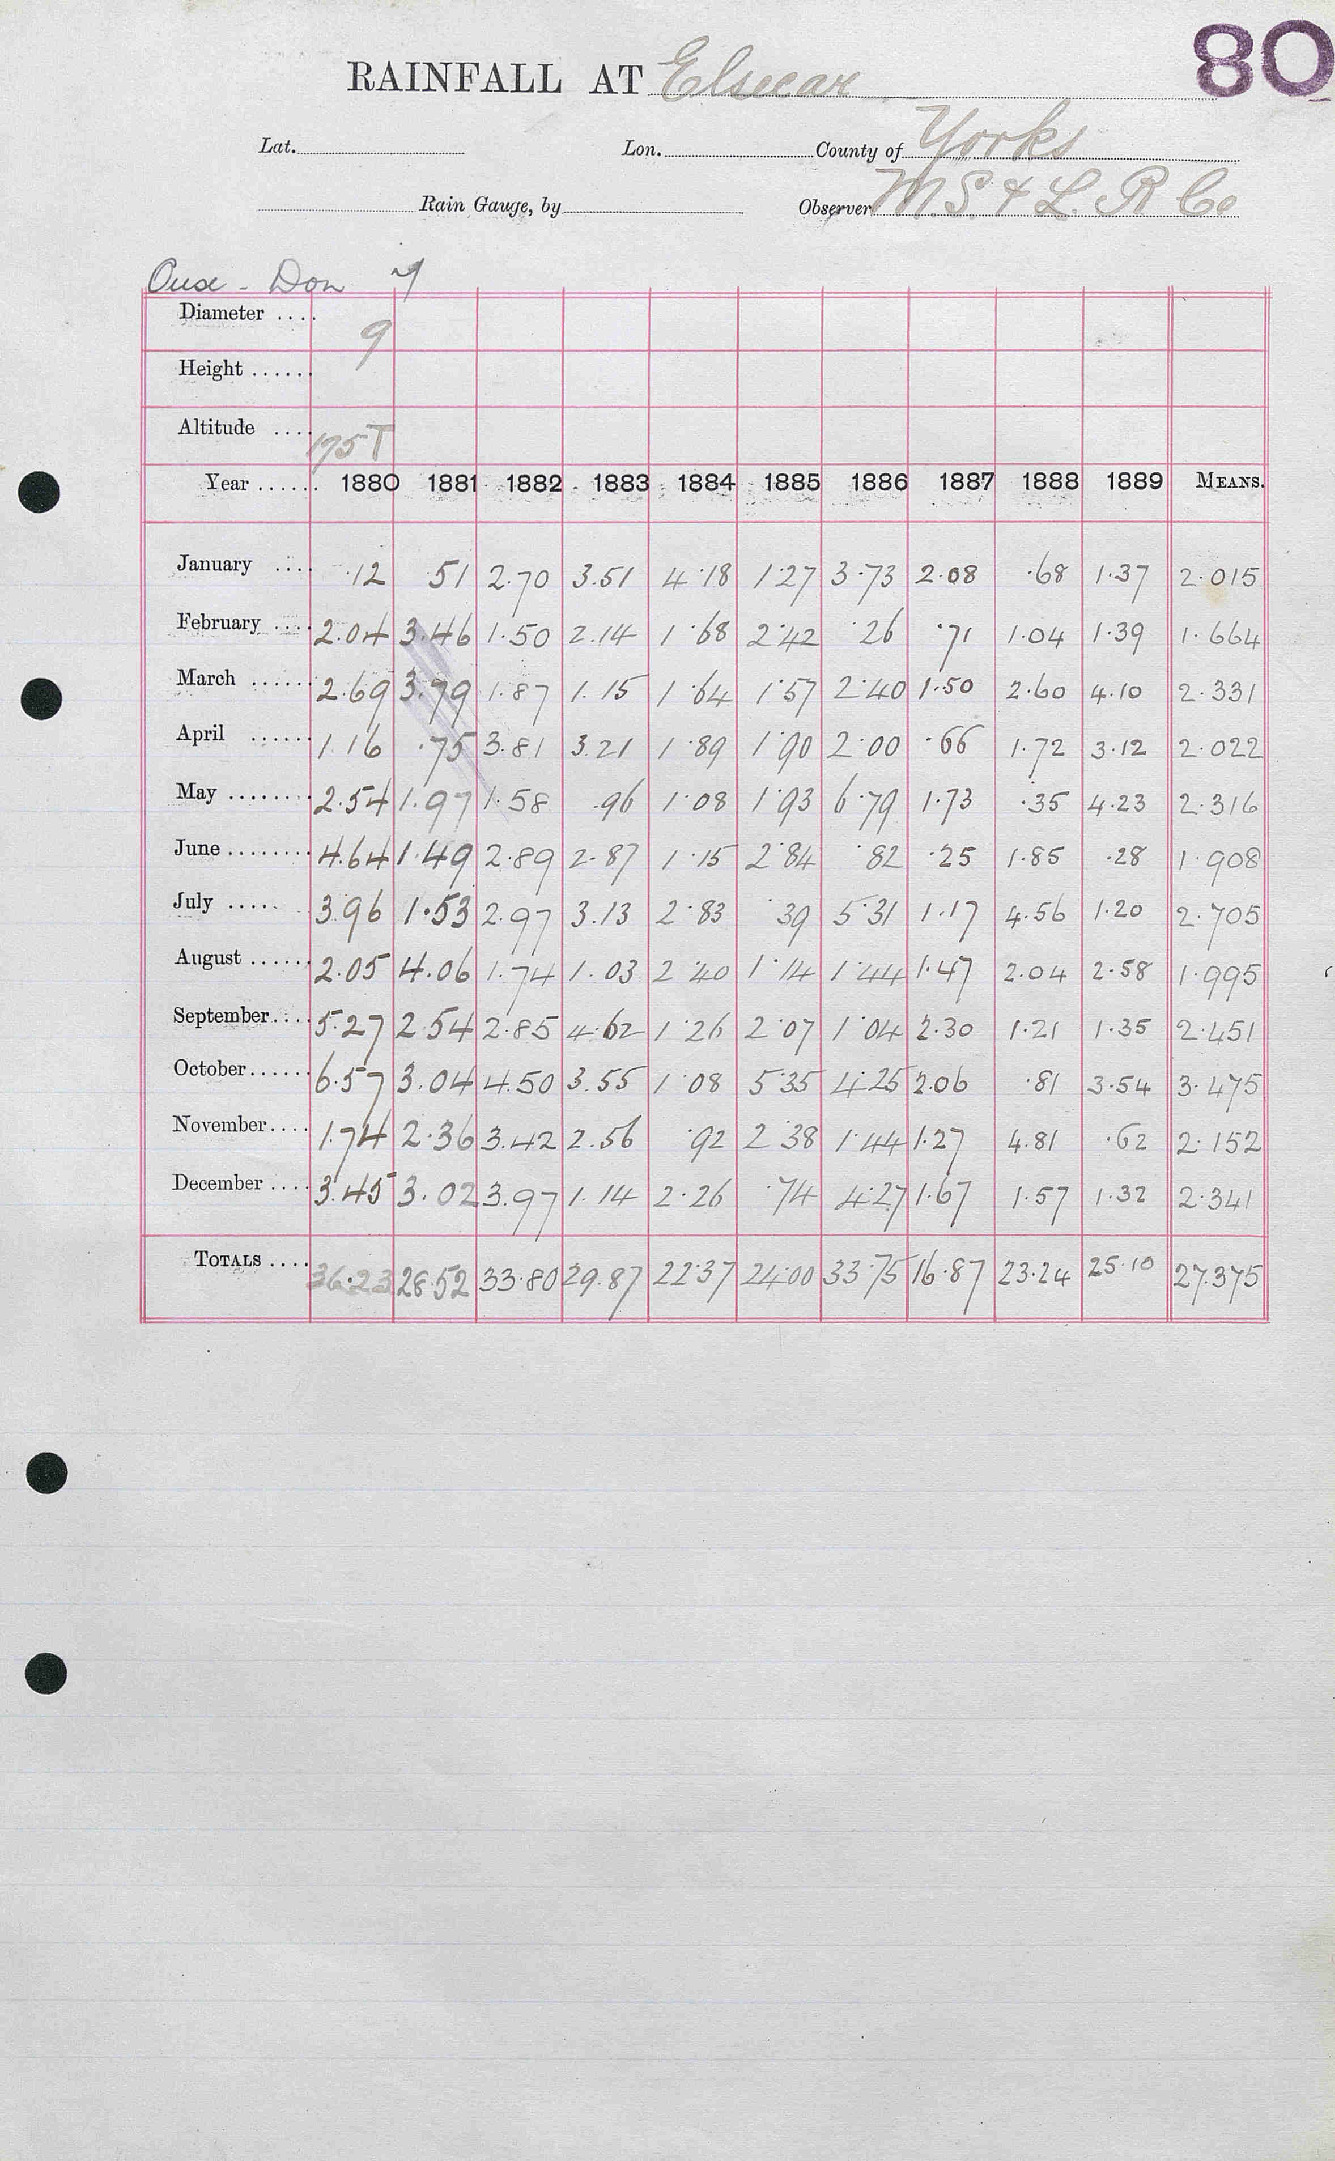 80
RAINFALL AT Elsecar
Lat. Lon. County of Yorks
Rain Gauge, by Observer M. S. & L. R Co
Ouse - Don
Diameter .... 9
Height ......
Altitude .... 175 T
Year ...... 1880 1881 1882 1883 1884 1885 1886 1887 1888 1889 MEANS.
January .... .12 51 2.70 3.51 4.18 1.27 3.73 2.08 .68 1.37 2.015
February .... 2.04 3.46 1.50 2.14 1.68 2.42 .26 .71 1.04 1.39 1.664
March ...... 2.69 3.79 1.87 1.15 1.64 1.57 2.40 1.50 2.60 4.10 2.331
April ...... 1.16 .75 3.81 3.21 1.89 1.90 2.00 .66 1.72 3.12 2.022
May ........ 2.54 1.97 1.58 .96 1.08 1.93 6.79 1.73 .35 4.23 2.316
June ........ 4.64 1.49 2.89 2.87 1.15 2.84 .82 .25 1.85 .28 1.908
July ..... 3.96 1.53 2.97 3.13 2.83 .39 5.31 1.17 4.56 1.20 2.705
August ...... 2.05 4.06 1.74 1.03 2.40 1.14 1.44 1.47 2.04 2.58 1.995
September.... 5.27 2.54 2.85 4.62 1.26 2.07 1.04 2.30 1.21 1.35 2.451
October...... 6.57 3.04 4.50 3.55 1.08 5.35 4.25 2.06 .81 3.54 3.475
November.... 1.74 2.36 3.42 2.56 .92 2.38 1.44 1.27 4.81 .62 2.152
December .... 3.45 3.02 3.97 1.14 2.26 .74 4.27 1.67 1.57 1.32 2.341
TOTALS .... 36.23 28.52 33.80 29.87 22.37 24.00 33.75 16.87 23.24 25.10 27.375